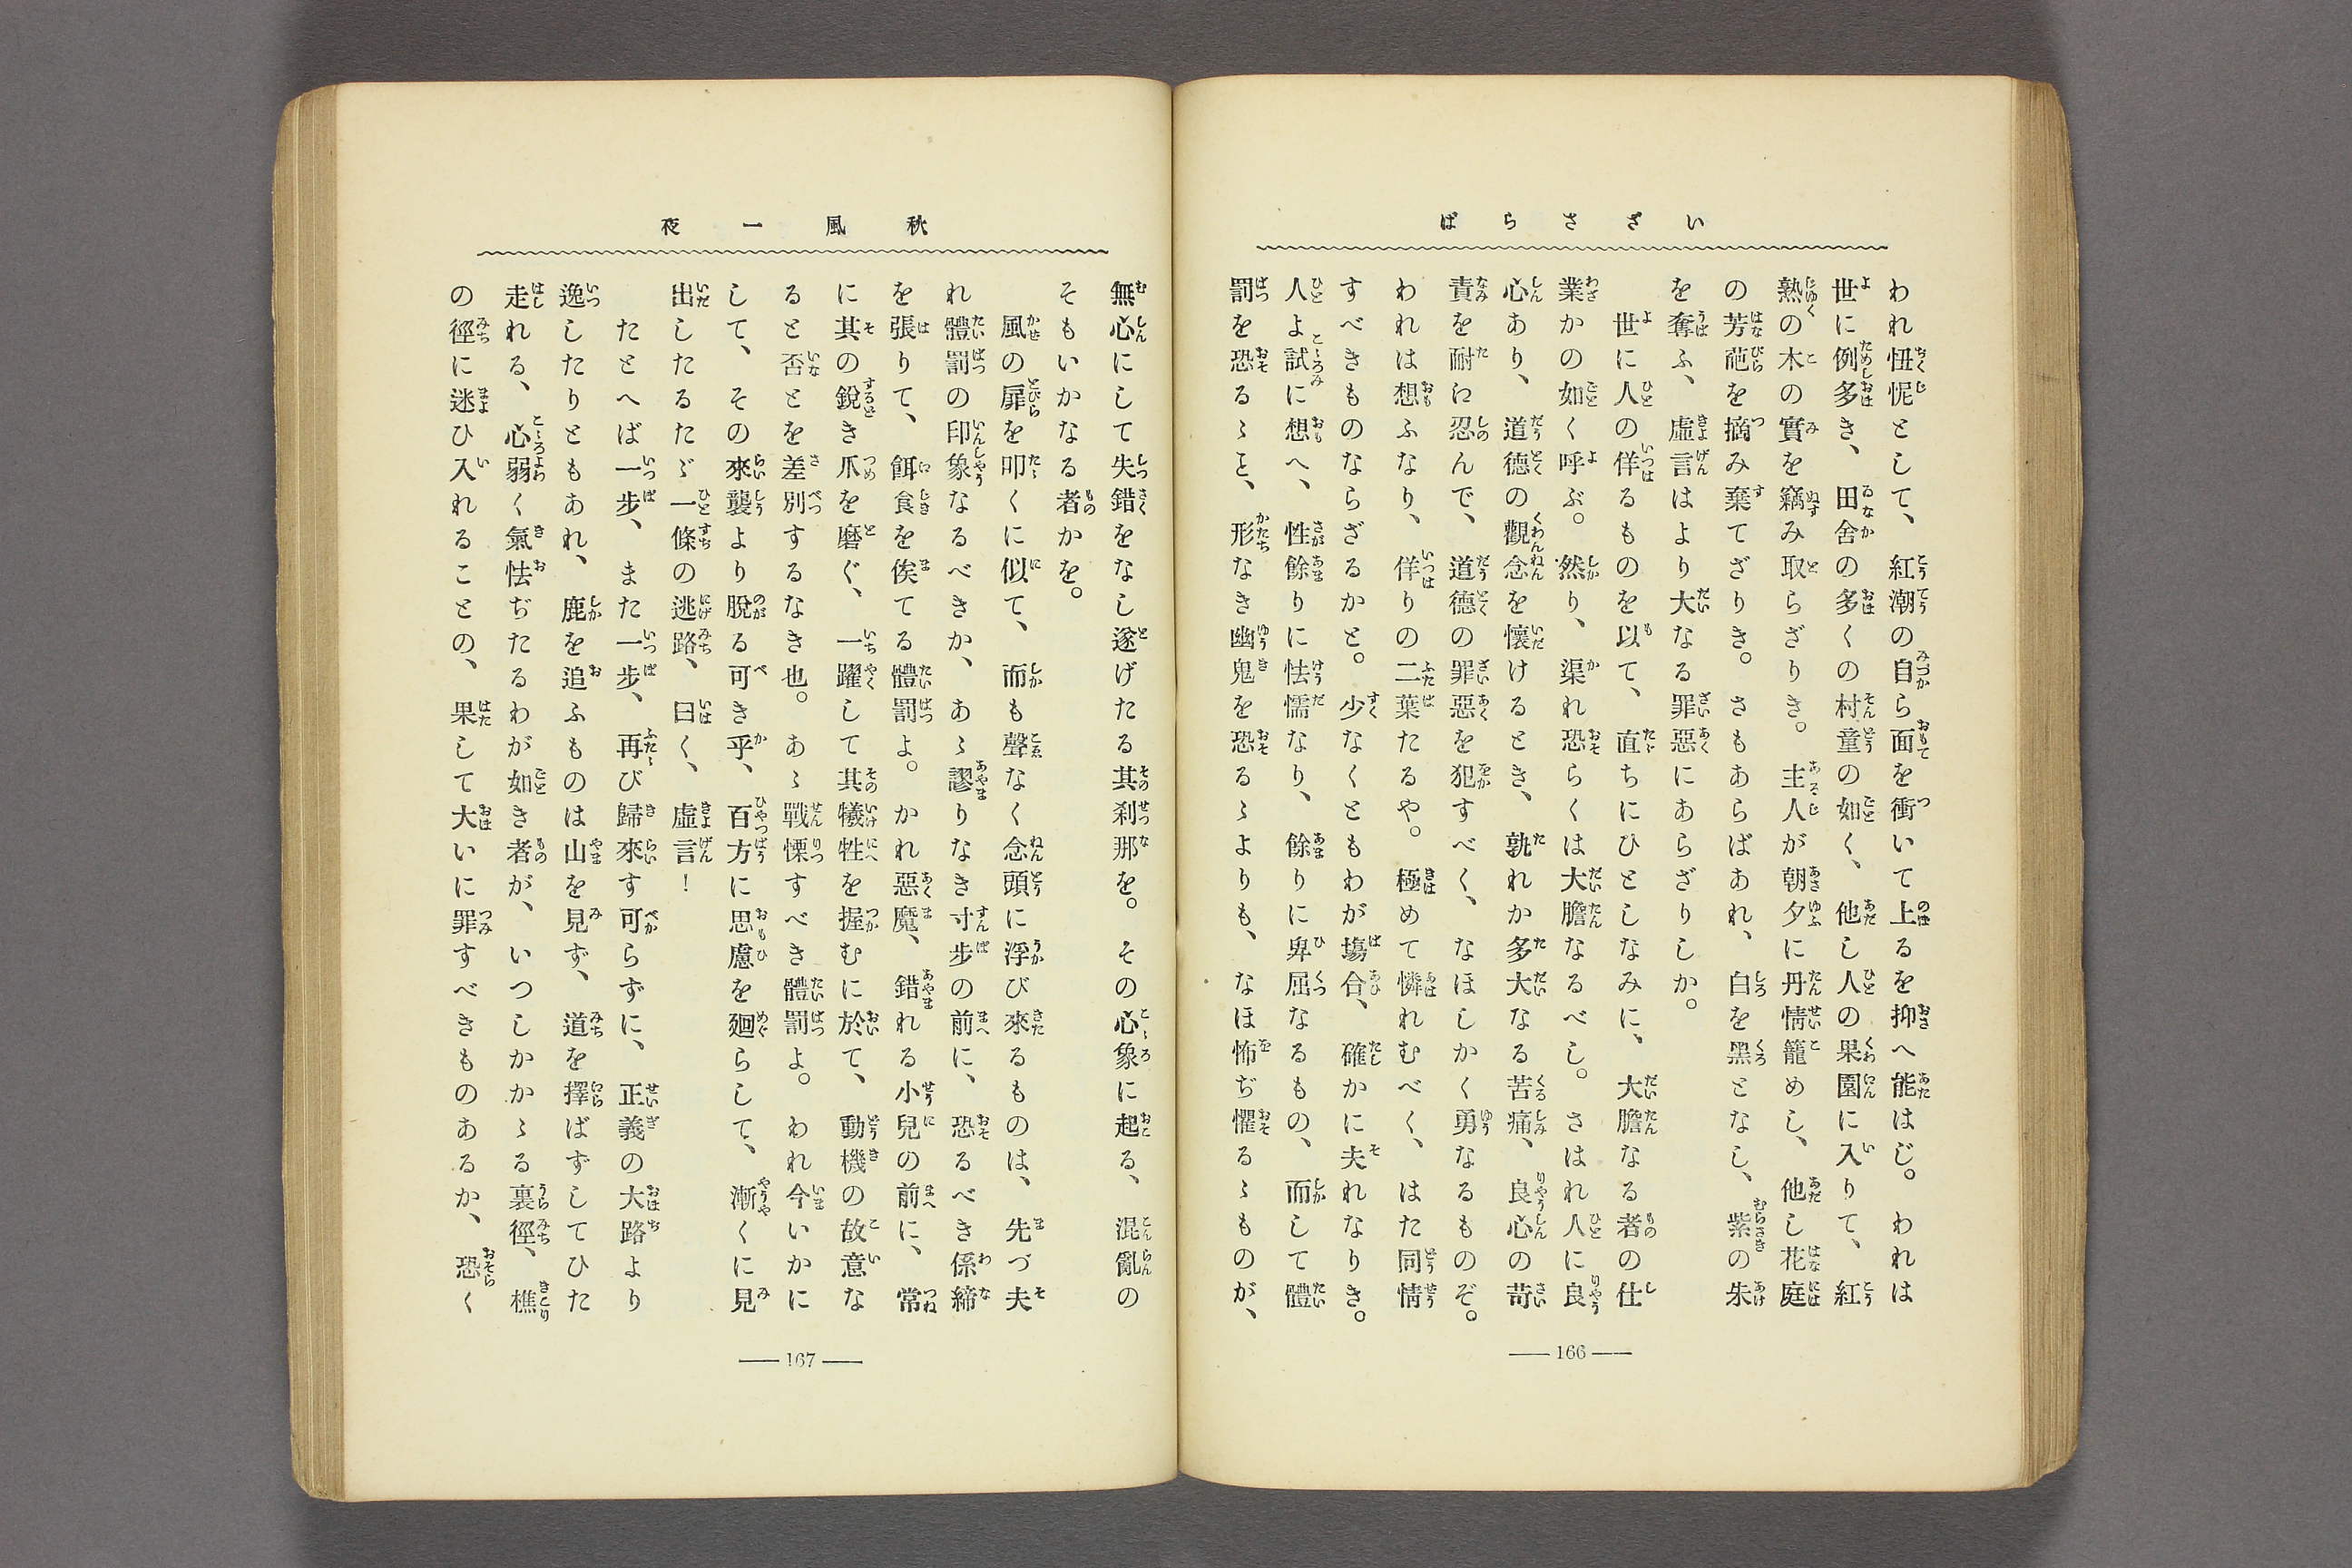 いざさらば
われ忸怩として、紅潮の自ら面を衝いて上るを抑へ能はじ。われは
世に例多き、田舍の多くの村童の如く、他し人の果園に入りて、紅
熟の木の實を竊み取らざりき。主人が朝夕に丹情籠めし、他し花庭
の芳葩を摘み棄てざりき。さもあらばあれ、白を黑となし、紫の朱
を奪ふ、虛言はより大なる罪惡にあらざりしか。
世に人の佯るものを以て、直ちにひとしなみに、大膽なる者の仕
業かの如く呼ぶ。然り、渠れ恐らくは大膽なるべし。さはれ人に良
心あり、道德の觀念を懷けるとき、孰れか多大なる苦痛、良心の苛
責を耐わ忍んで、道德の罪惡を犯すべく、なほしかく勇なるものぞ。
われは想ふなり、佯りの二葉たるや。極めて憐れむべく、はた同情
すべきものならざるかと。少なくともわが塲合、確かに夫れなりき。
人よ試に想へ、性餘りに怯懦なり、餘りに卑屈なるもの、而して體
罰を恐るゝと、形なき幽鬼を恐るゝよりも、なほ怖ぢ懼るゝものが、
166
秋風一夜
無心にして失錯をなし遂げたる其刹那を。その心象に起る、混亂の
そもいかなる者かを。
風の扉を叩くに似て、而も聲なく念頭に浮び來るものは、先づ夫
れ體罰の印象なるべきか、あゝ謬りなき寸步の前に、恐るべき係締
を張りて、餌食を俟てる體罰よ。かれ惡魔、錯れる小兒の前に、常
に其の銳き爪を磨ぐ、一躍して其犧牲を握むに於て、動機の故意な
ると否とを差別するなき也。あゝ戰慄すべき體罰よ。われ今いかに
して、その來襲より脫る可き乎、百方に思慮を廻らして、漸くに見
出したるたゞ一條の逃路、曰く、虛言！
たとへば一步、また一步、再び歸來す可らずに、正義の大路より
逸したりともあれ、鹿を追ふものは山を見ず、道を擇ばずしてひた
走れる、心弱く氣怯ぢたるわが如き者が、いつしかかゝる裏徑、樵
の徑に迷ひ入れることの、果して大いに罪すべきものあるか、恐く
167